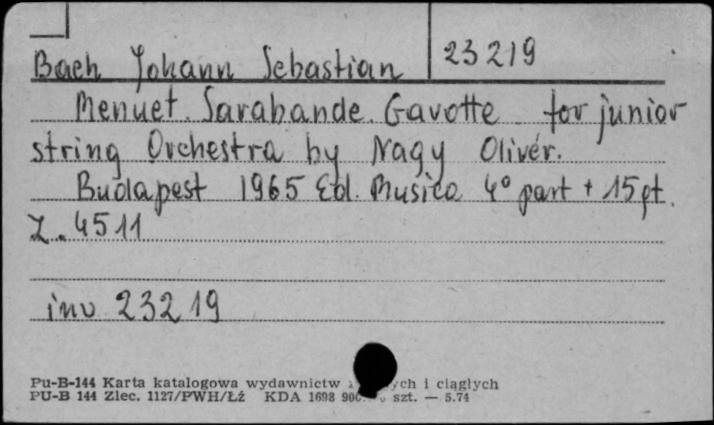 Bach Johann Sebastian 23219
Menuet. Sarabande. Gavotte for junior
string Orchestra by Nagy Olivér.
Budapest 1965 Ed. Musica 4° part + 15 pt.
Z. 4511
inv 23219
Pu-B-144 Karta katalogowa wydawnictw i ciągłych
PU-B 144 Zlec. 1127/PWH/Łź KDA 1698 szt. — 5.74